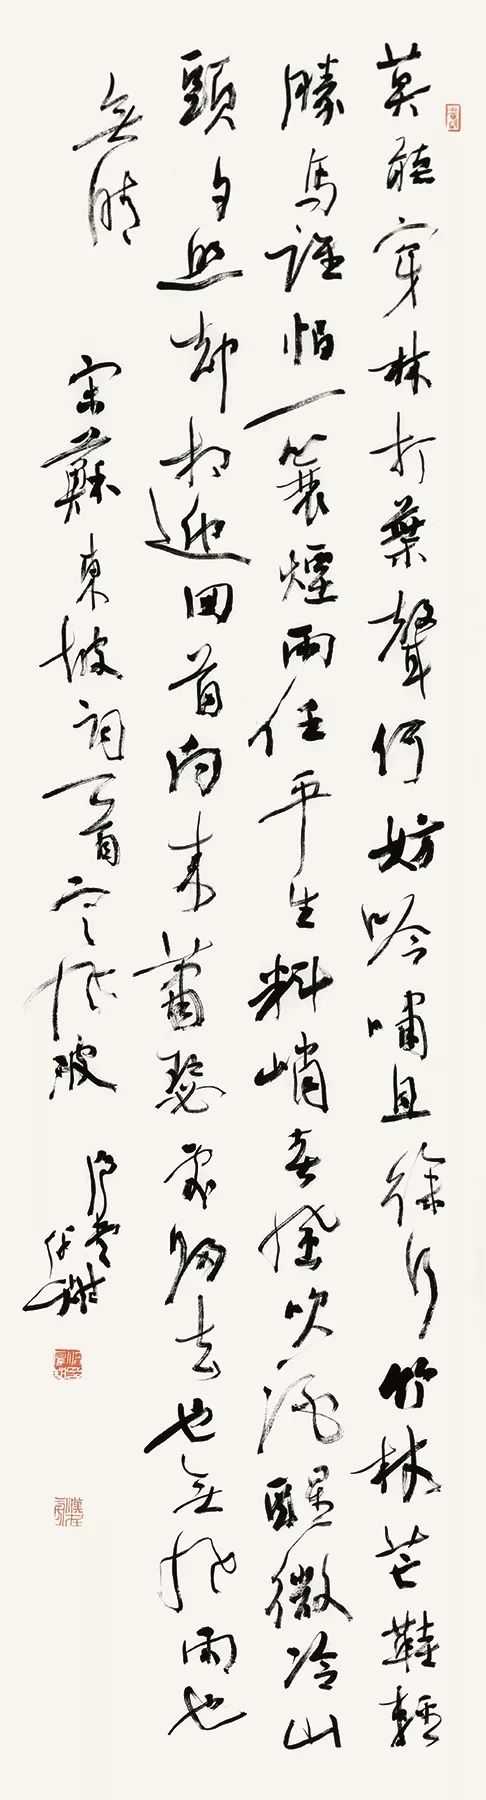 莫聽穿林打葉聲何妨吟嘯且徐行竹杖芒鞋輕
勝馬誰怕一簑煙雨任平生料峭春風吹酒醒微冷山
頭夕照却相迎回首向来蕭瑟處歸去也無風雨也
無晴
宋蘇東坡詞一首定風波